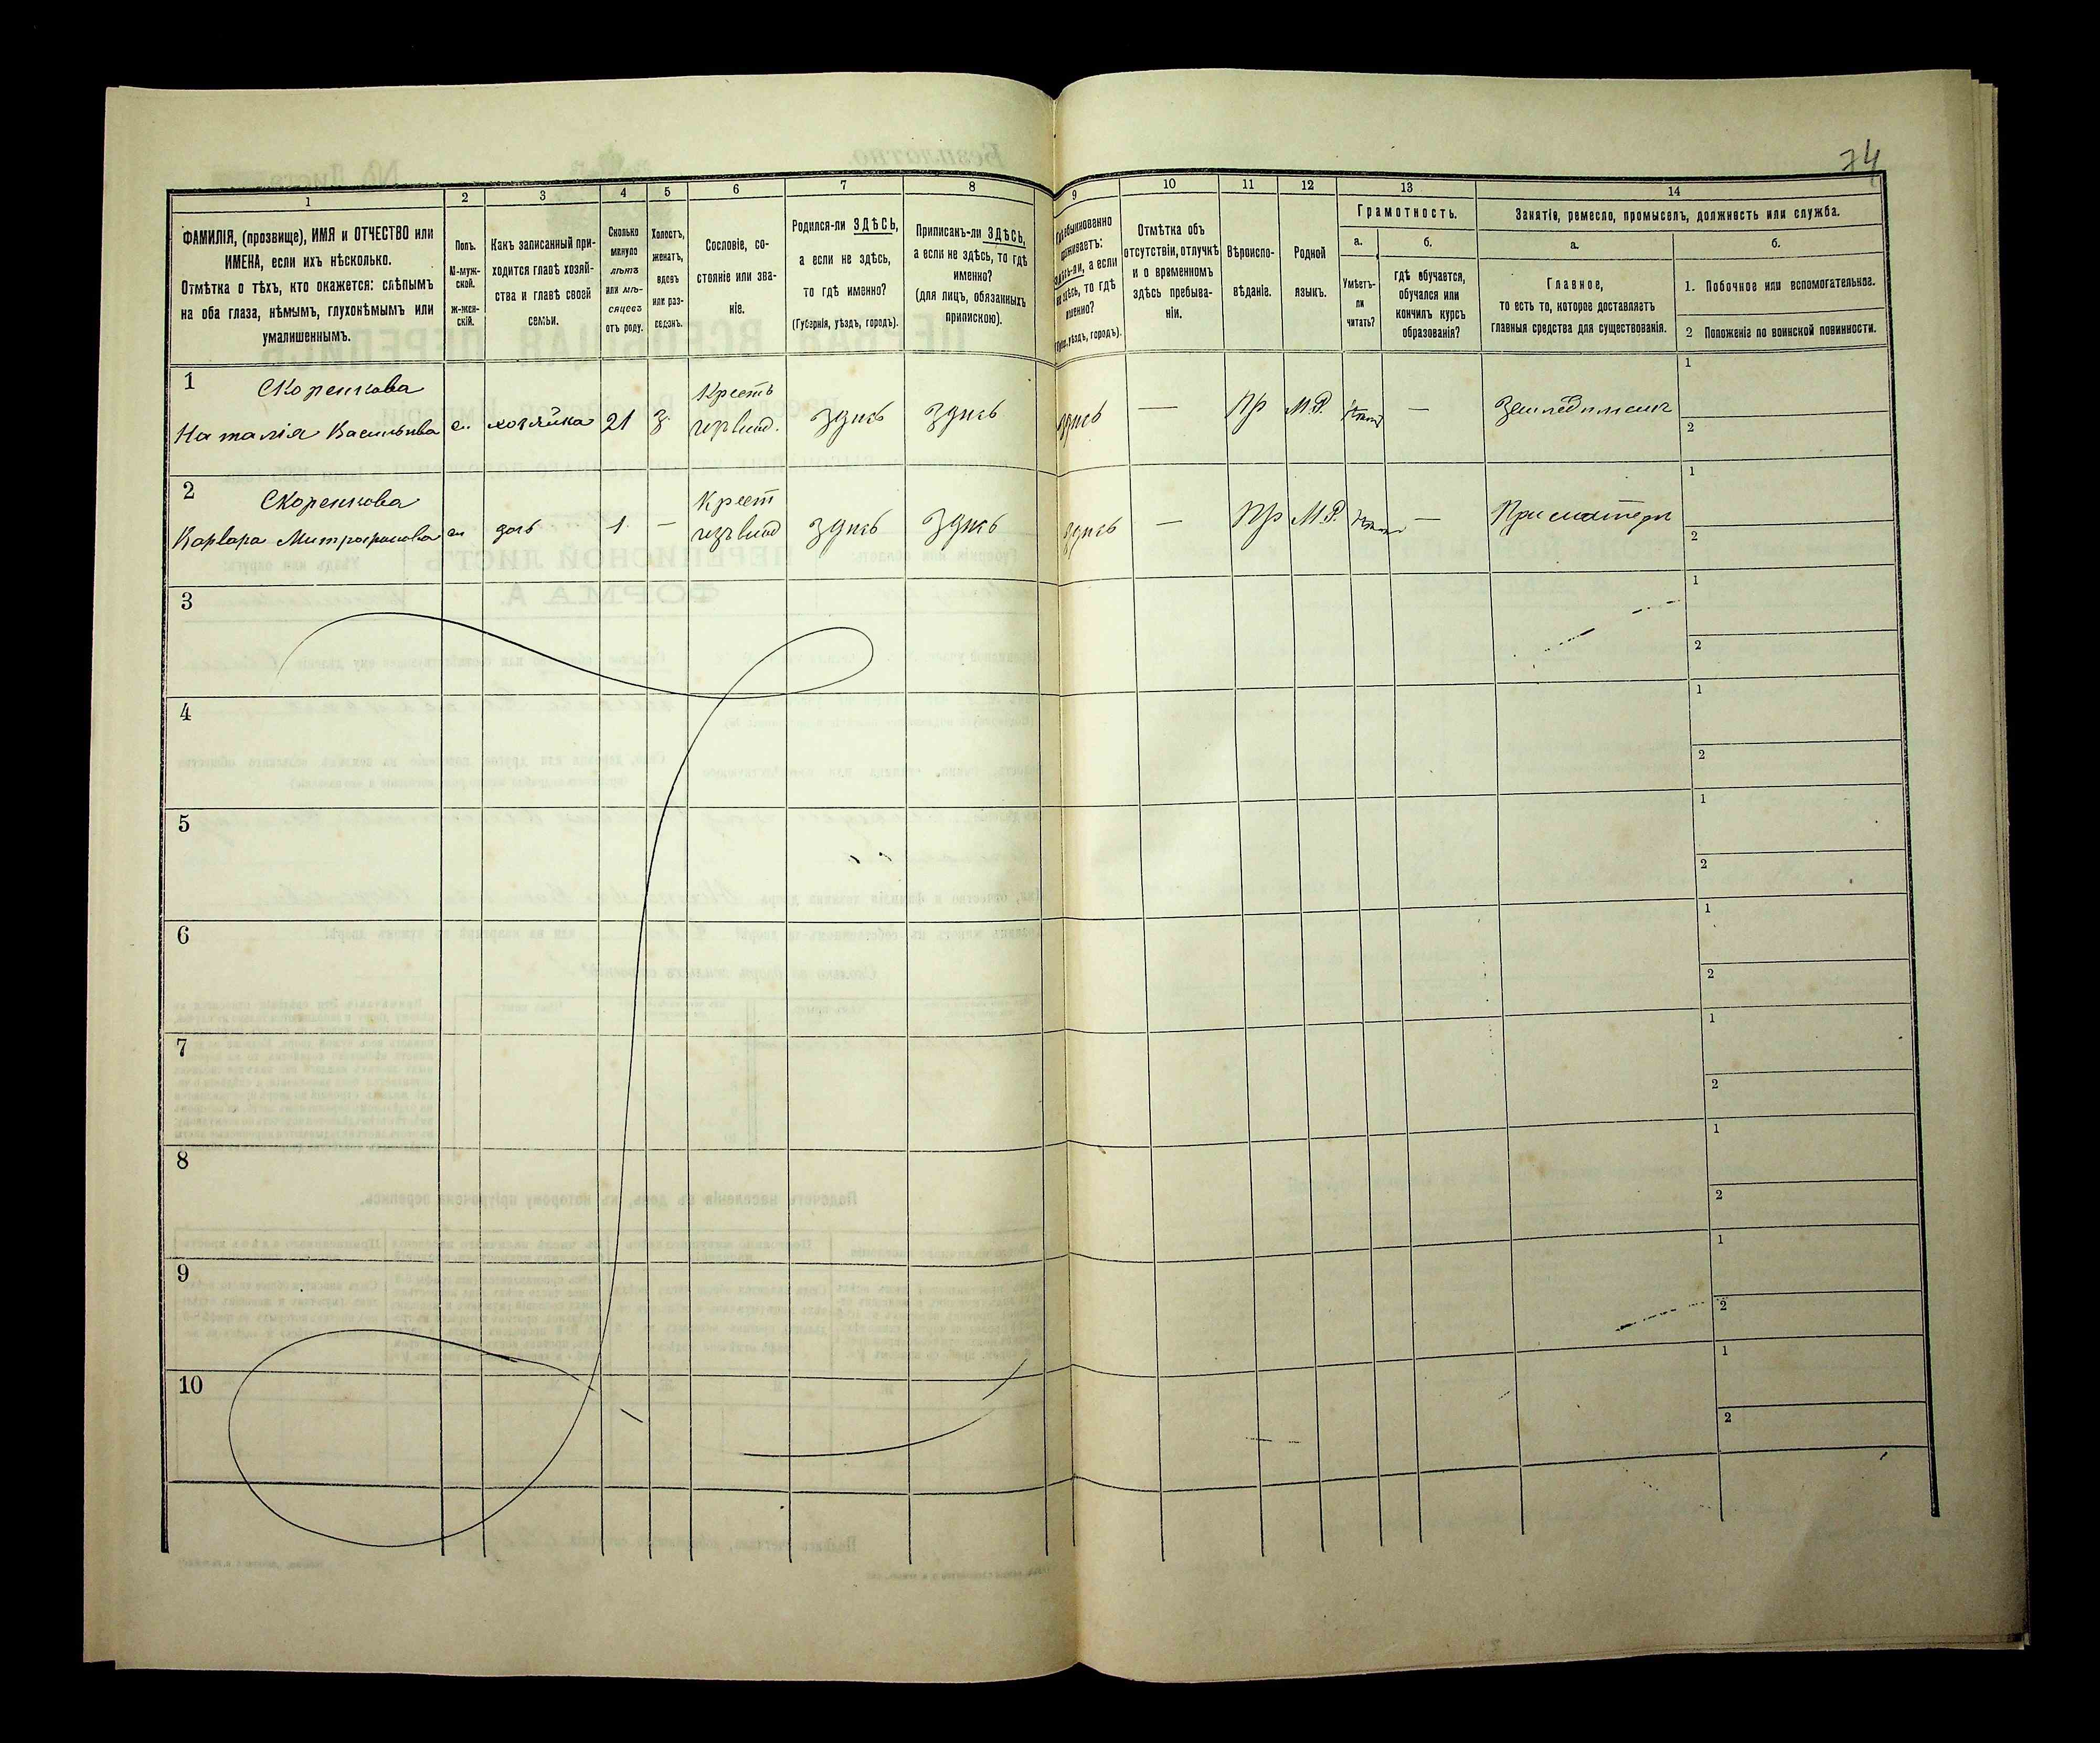 74
1
2
3
4
5
6
7
8
9
10
11
12
13
14
ФАМИЛІЯ, (прозвище), ИМЯ и ОТЧЕСТВО или
ИМЕНА, если ихъ нѣсколько.
Отмѣтка о тѣхъ, кто окажется: слѣпымъ
на оба глаза, нѣмымъ, глухонѣмымъ или
умалишеннымъ.
Полъ.
М-муж-
ской.
ж-жен-
скій.
Какъ записанный при-
ходится главѣ хозяй-
ства и главѣ своей
семьи.
Сколько
минуло
лѣтъ
или мѣ-
сяцевъ
отъ роду.
Холостъ,
женатъ,
вдовъ
или раз-
веденъ.
Сословіе, со-
стояніе или зва-
ніе.
Родился-ли ЗДѢСЬ,
а если не здѣсь,
то гдѣ именно?
(Губернія, уѣздъ, городъ).
Приписанъ-ли ЗДѢСЬ,
а если не здѣсь, то гдѣ
именно?
(для лицъ, обязанныхъ
припискою).
обыкновенно
проживаетъ:
здѣсь-ли, а если
не здѣсь, то гдѣ
именно?
уѣздъ, городъ).
Отмѣтка объ
отсутствіи, отлучкѣ
и о временномъ
здѣсь пребыва-
ніи.
Вѣроиспо-
вѣданіе.
Родной
языкъ.
Грамотность.
а.
Умѣетъ-
ли
читать?
б.
гдѣ обучается,
обучался или
кончилъ курсъ
образованія?
Занятіе, ремесло, промыселъ, должность или служба.
а.
Главное,
то есть то, которое доставляетъ
главныя средства для существованія.
б.
1. Побочное или вспомогательное.
2 Положеніе по воинской повинности.
1
Скоренкова
Наталія Васильева
хозяйка
21
з.
Крест
здѣсь
здѣсь
здѣсь
—
Пр
М.Р.
—
1
2
2
Скоренкова
Варвара Митрофанова
дочь
1.
—
Крест
здѣсь
здѣсь
здѣсь
—
Пр
М.Р.
—
При матери
1
2
3
1
2
4
1
2
5
1
2
6
1
2
7
1
2
8
1
2
9
1
2
10
1
2